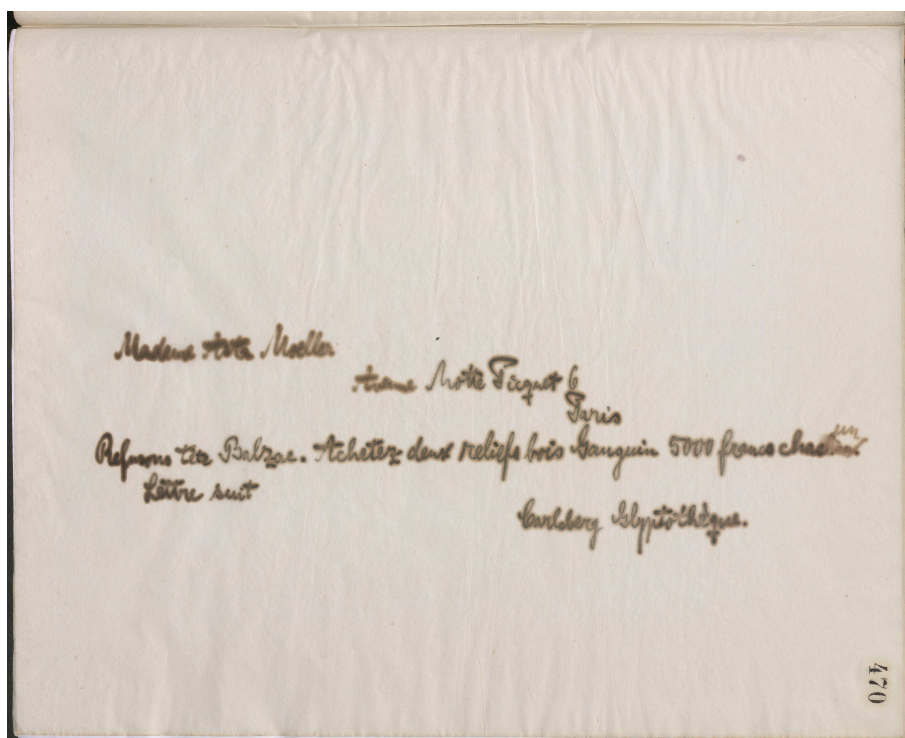 Madame Asta Moeller
Avenue Motte Picquet 6
Paris
Refusons tête Balzac. Achetez deux reliefs bois Gauguin 5000 francs chacun
Lettre suit
Carlsberg Glyptothèque.
470